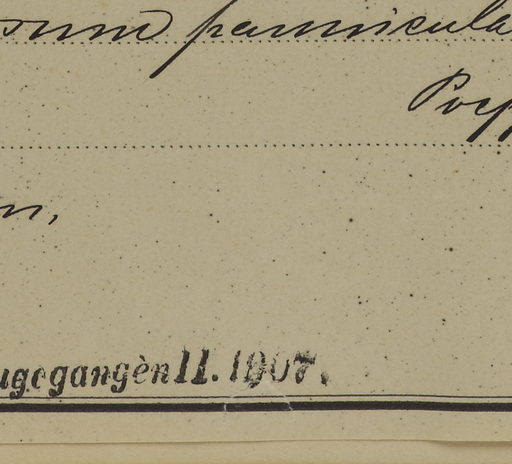 panicula
Poep
n,
ugegangen 11. 1907.